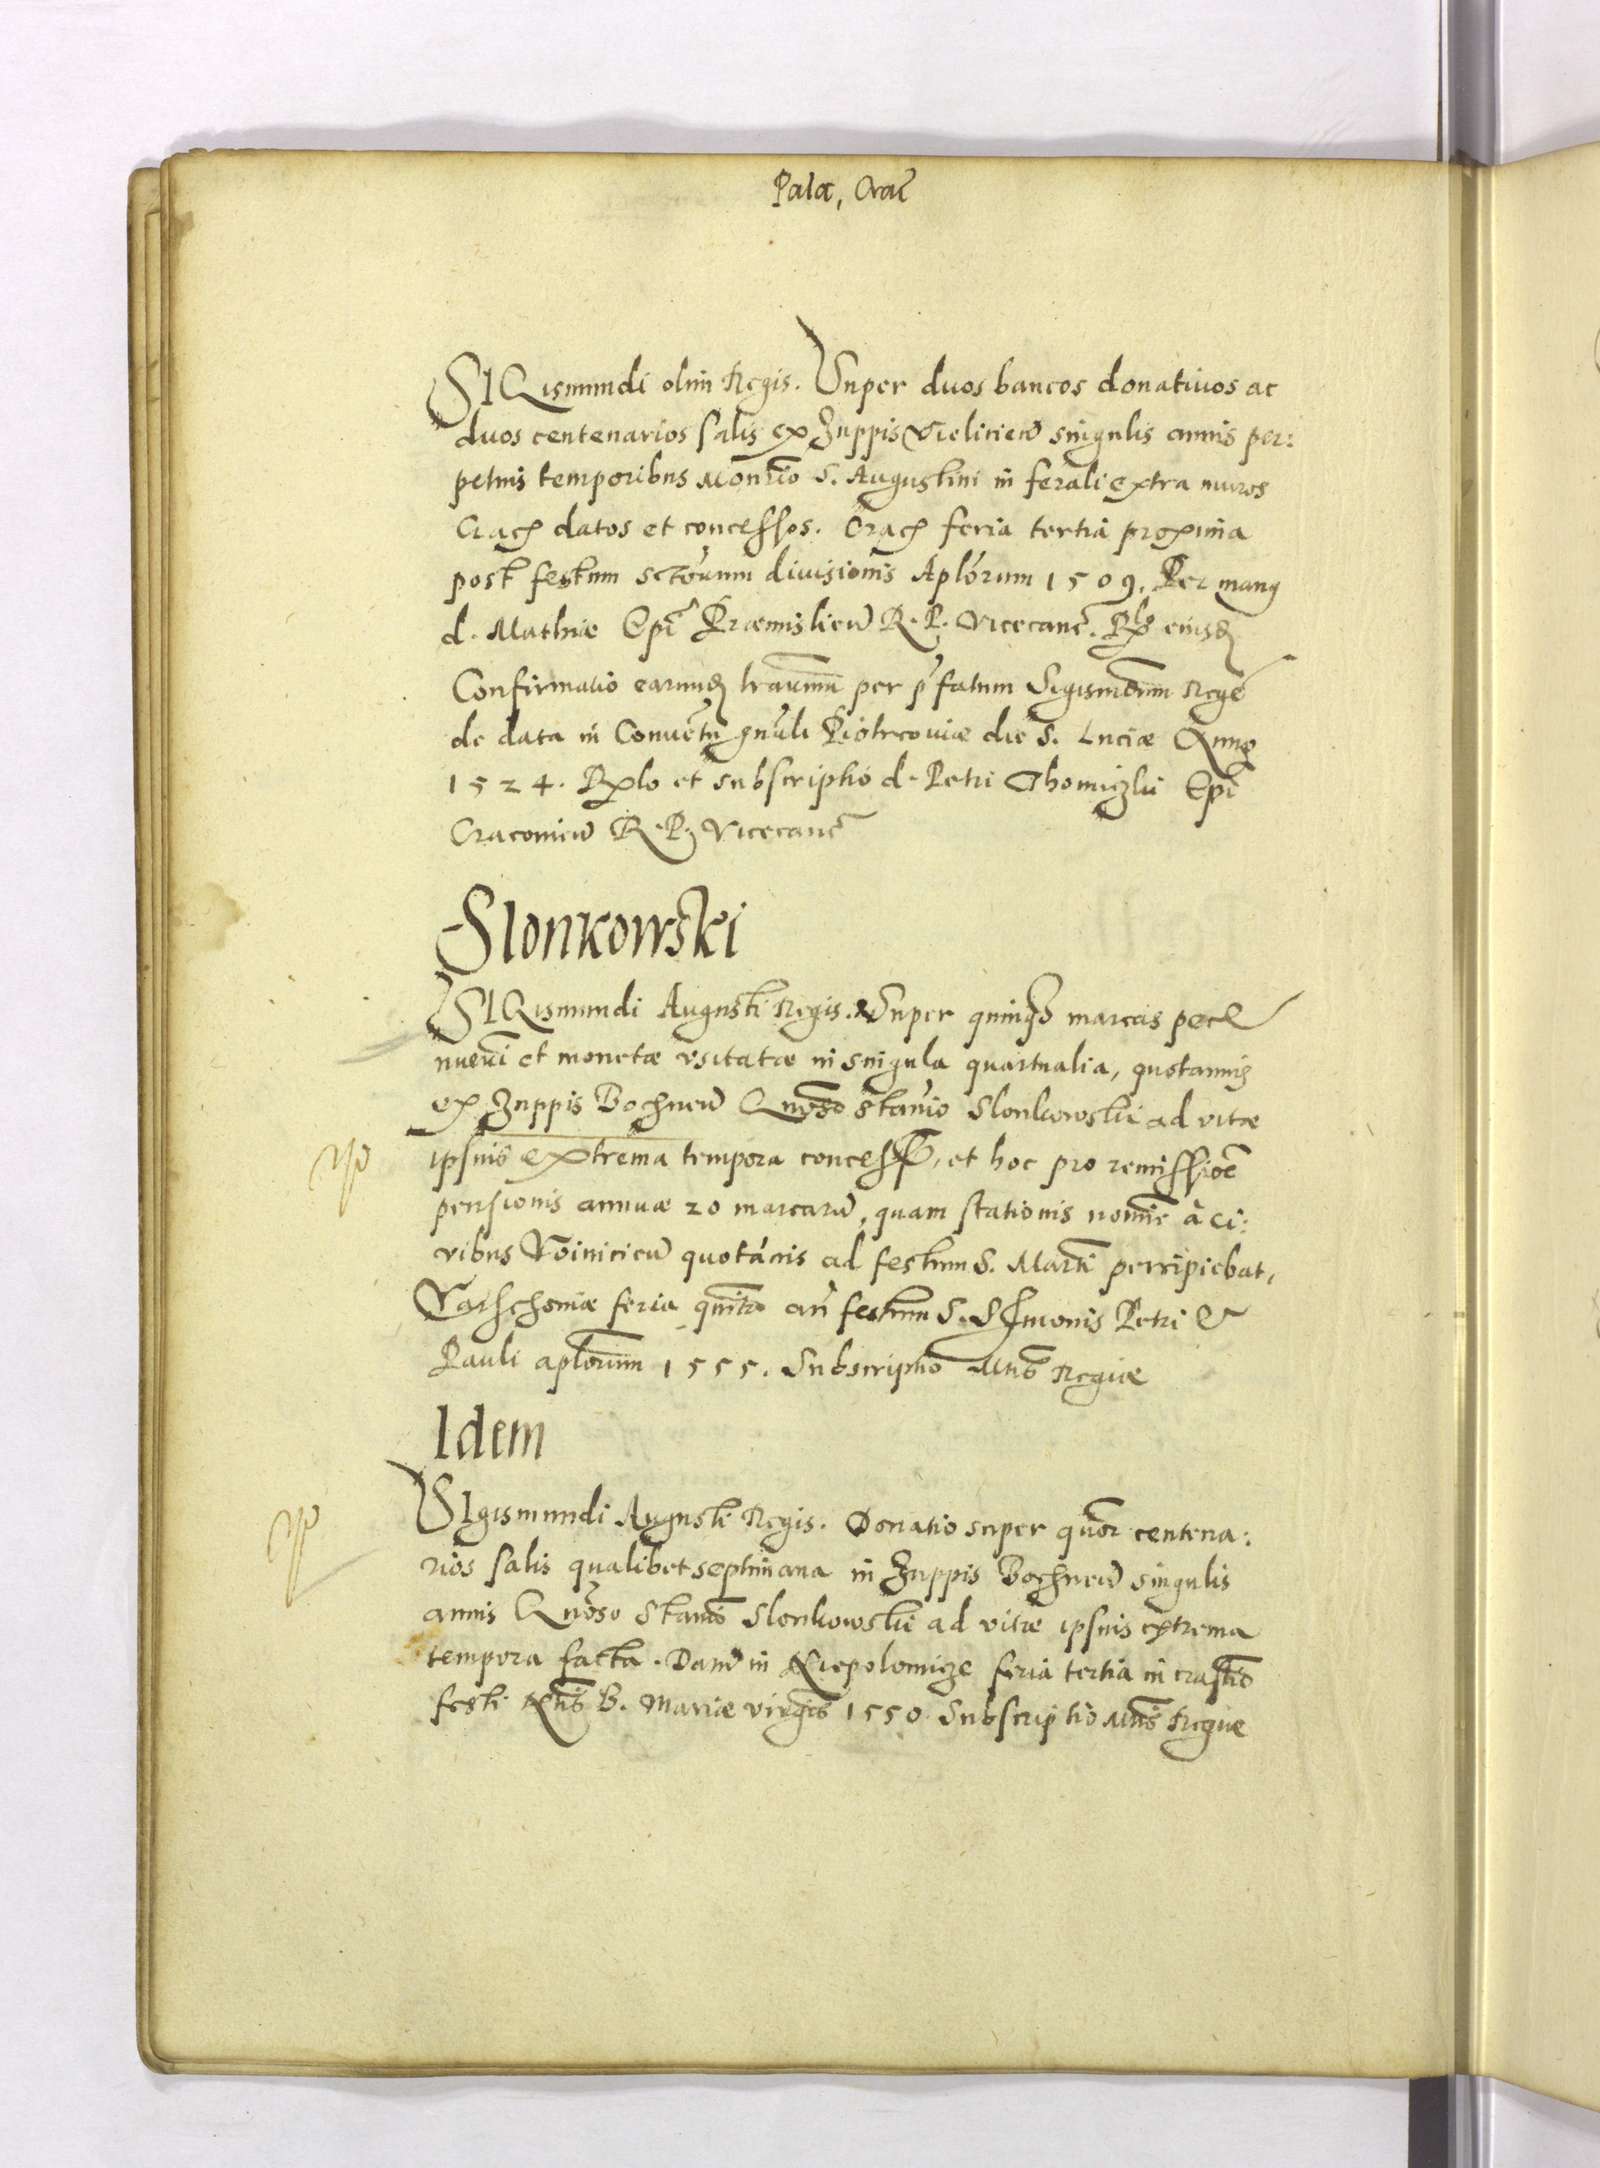 Palat, Crac̃
SIGismundi olim Regis. Super duos bancos donativos ac
duos centenarios salis ex Zuppis Vielicien̄ singulis annis per:
petuis temporibus Monr̄io S. Augustini in ferali extra muros
Crac̄ datos et concessos. Crac̄ feria tertia proxima
post festum sctōrum divisionis Aplōrum 1509. Per manꝰ
d. Mathiæ Epī Præmislien̄ R. P. Vicecanc̄. eiusđ
Confirmatio earunđ per p̄fatum Sigismundum Regē
de data in Conventu gnāli Piotrcoviæ die S. Luciæ Anno
1524. et subscriptio d. Petri Thomiczki Epī
Cracovien̄ R. P. Vicecanc̄
Slonkowski
SIGismundi Augusti Regis. Super marcis pec̄
nuem̄i et monetæ usitatæ in singula quartualia, quotannis
ex Zuppis Bochnen̄ Gnōso Stan̄io Slonkowski ad vitæ
ipsius extrema tempora concess̄, et hoc pro remissiōe
pensionis annuæ 20 marcarū, quam stationis nomīe à ci:
vibus Voinicien̄ quotānis ad festum S. Martī percipiebat,
feria quīta an̄ festum S. Petri &
Pauli aplōrum 1555. Subscriptio Mtīs Regiæ
Idem
SIgismundi Augusti Regis. Donatio super quōr centena:
rios salis qualibet septimana in Zuppis Bochnen̄ singulis
annis Gnōso Stan̄io Slonkowski ad vitæ ipsius extrema
tempora facta. Datū in Niepolomicze feria tertia in crastīo
festi Ntīs B. Mariæ virgīs 1550 Subscriptio Mtīs Regiæ